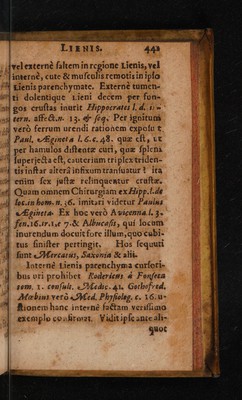 LIENIS. 441
vel externè saltem in regione Lienis, vel
internè, cute & musculis remotis in ipso
Lienis parenchymate. Externè tumen-
ti dolentique Lieni decem per fun-
gos crustas inurit Hippocrates l. d. in-
tern. affect. n. 13. & seq. Per ignitum
verò ferrum urendi rationem exposuit
Paul. Ægineta l. 6. c. 48. quæ est, ut
per hamulos distentæ cuti, quæ splena
superjecta est, cauterium triplex triden-
tis instar alterâ infixum transuatur ita
enim sex justæ relinquentur crustæ.
Quam omnem Chirurgiam ex Hipp. l. de
loc. in hom. n. 36. imitari videtur Paulus
Ægineta. Ex hoc verò Avicenna l. 3.
fen. 16. tr. 1. c. 7. & Albucasis, qui locum
inurendum docuit fore illum, quo cubi-
tus sinister pertingit. Hos sequuti
sunt Mercatus, Saxonia & alii.
Internè Lienis parenchyma cursori-
bus uri prohibet Rodericus à Fonseca
tom. 1. consult. Medic. 41. Gothofred.
Mœbius verò Med. Physiolog. c. 16. u-
stionem hanc internè factam verissimo
exemplo confirmat. Vidit ipse ante ali-
quot